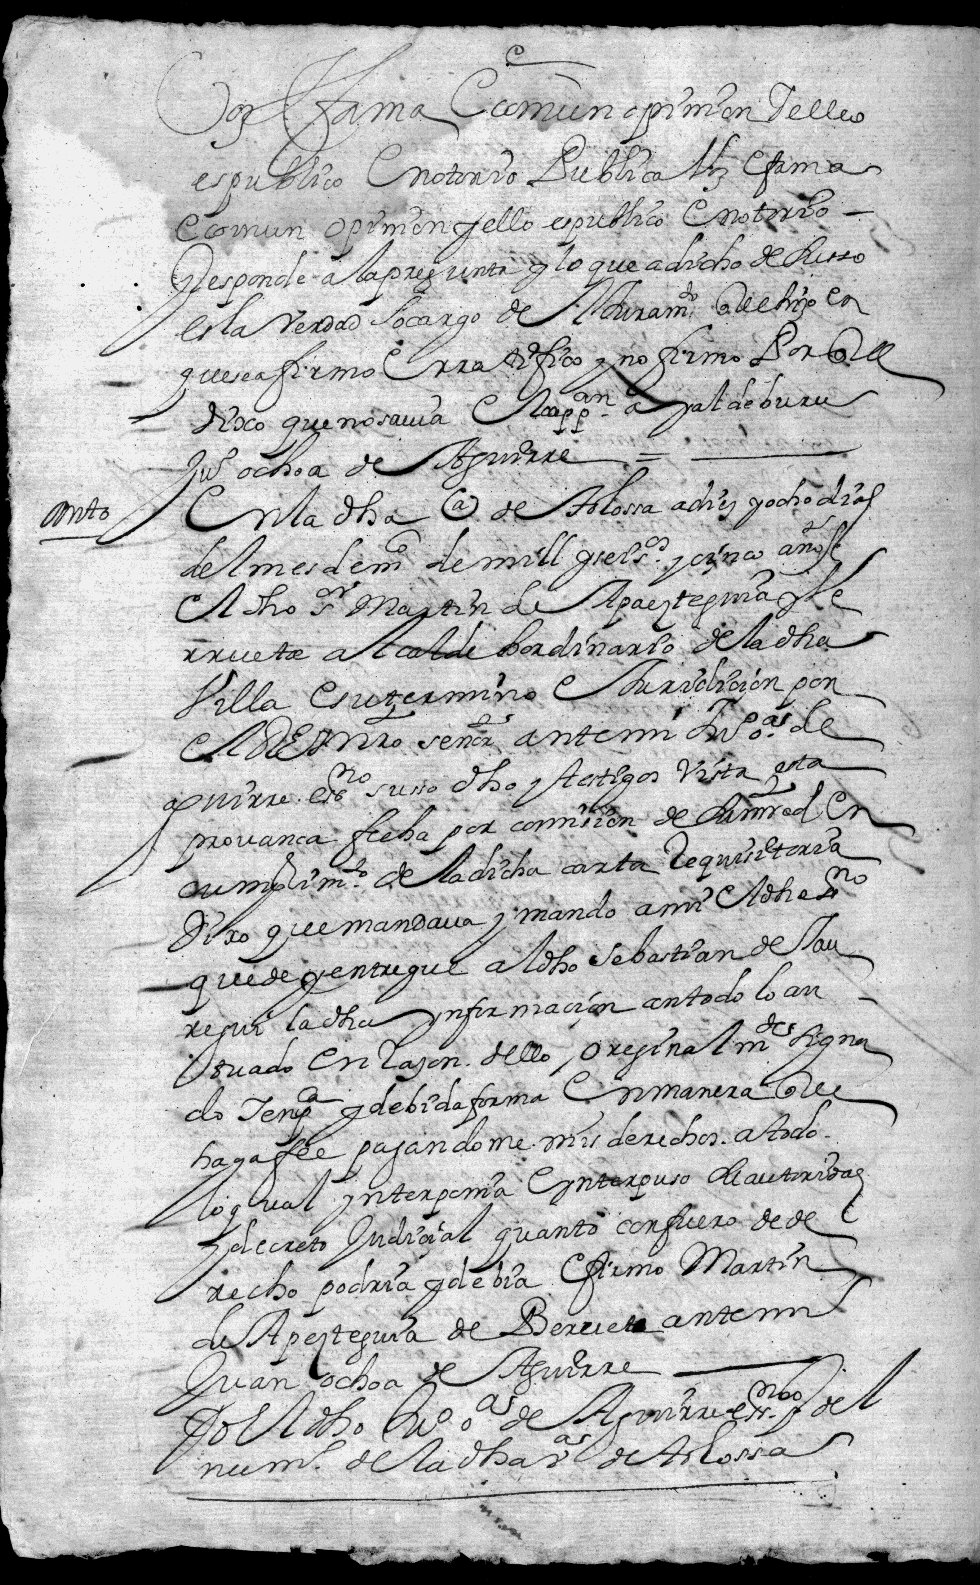 Voz E fama Comun opinion Dello
es publico E notorio Publica Voz E fama
E comun opinion y ello es publico E notorio
Responde a la pregunta y lo que a dicho de Russo
es la verdad so cargo de el Juram.to que hizo en
que se afirmo E rratifico y no firmo Por que
dixo que no savia El capp.an a yaldeburu
Ju.o ochoa de Aguirre =
auto
En la dha V.a de Atossa a diez y ocho dias
del mes de en.o de mill y seis.os y cinco años
El dho s.or Martin de Apaeztegui y Be
rrueta alcalde hordinario de la dha
Villa E su termino E Juridicion por
El Rey nro señor ante mi Ju.o o.as de
aguirre es.no susso dho y testigos Vista esta
provanca fecha por comision de su mrd En
cumplim.to de la dicha carta Requisitoria
Dixo que mandava y mando a mi El dho es.no
que de y entregue al dho Sebastian de Jau
regui la dha ynformacion con todo lo au
tuado En Razon dello original m.te signa
do En p.ca y debida forma En manera que
haga fee pagandome mis derechos a todo
lo qual ynterponia E ynterpuso su autoridad
y decreto Judicial quanto con fuero de de
recho podria y debia E firmo Martin
de Apeztegui de Berrueta ante mi
Juan ochoa de Aguirre
Yo El dho Ju.o o.as de Aguirre es.no del
num.o de la dha v.a de Atossa